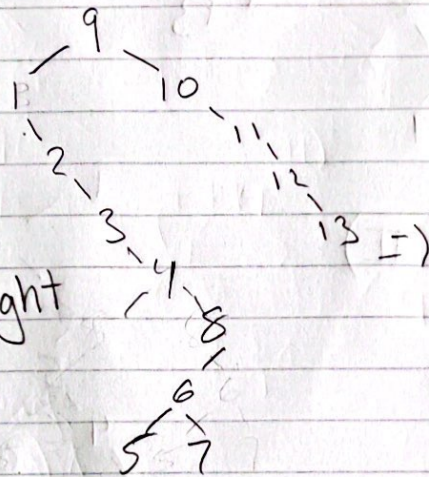 9
1 10
11
2
12
3
13 =)
4
ght
8
6
5 7